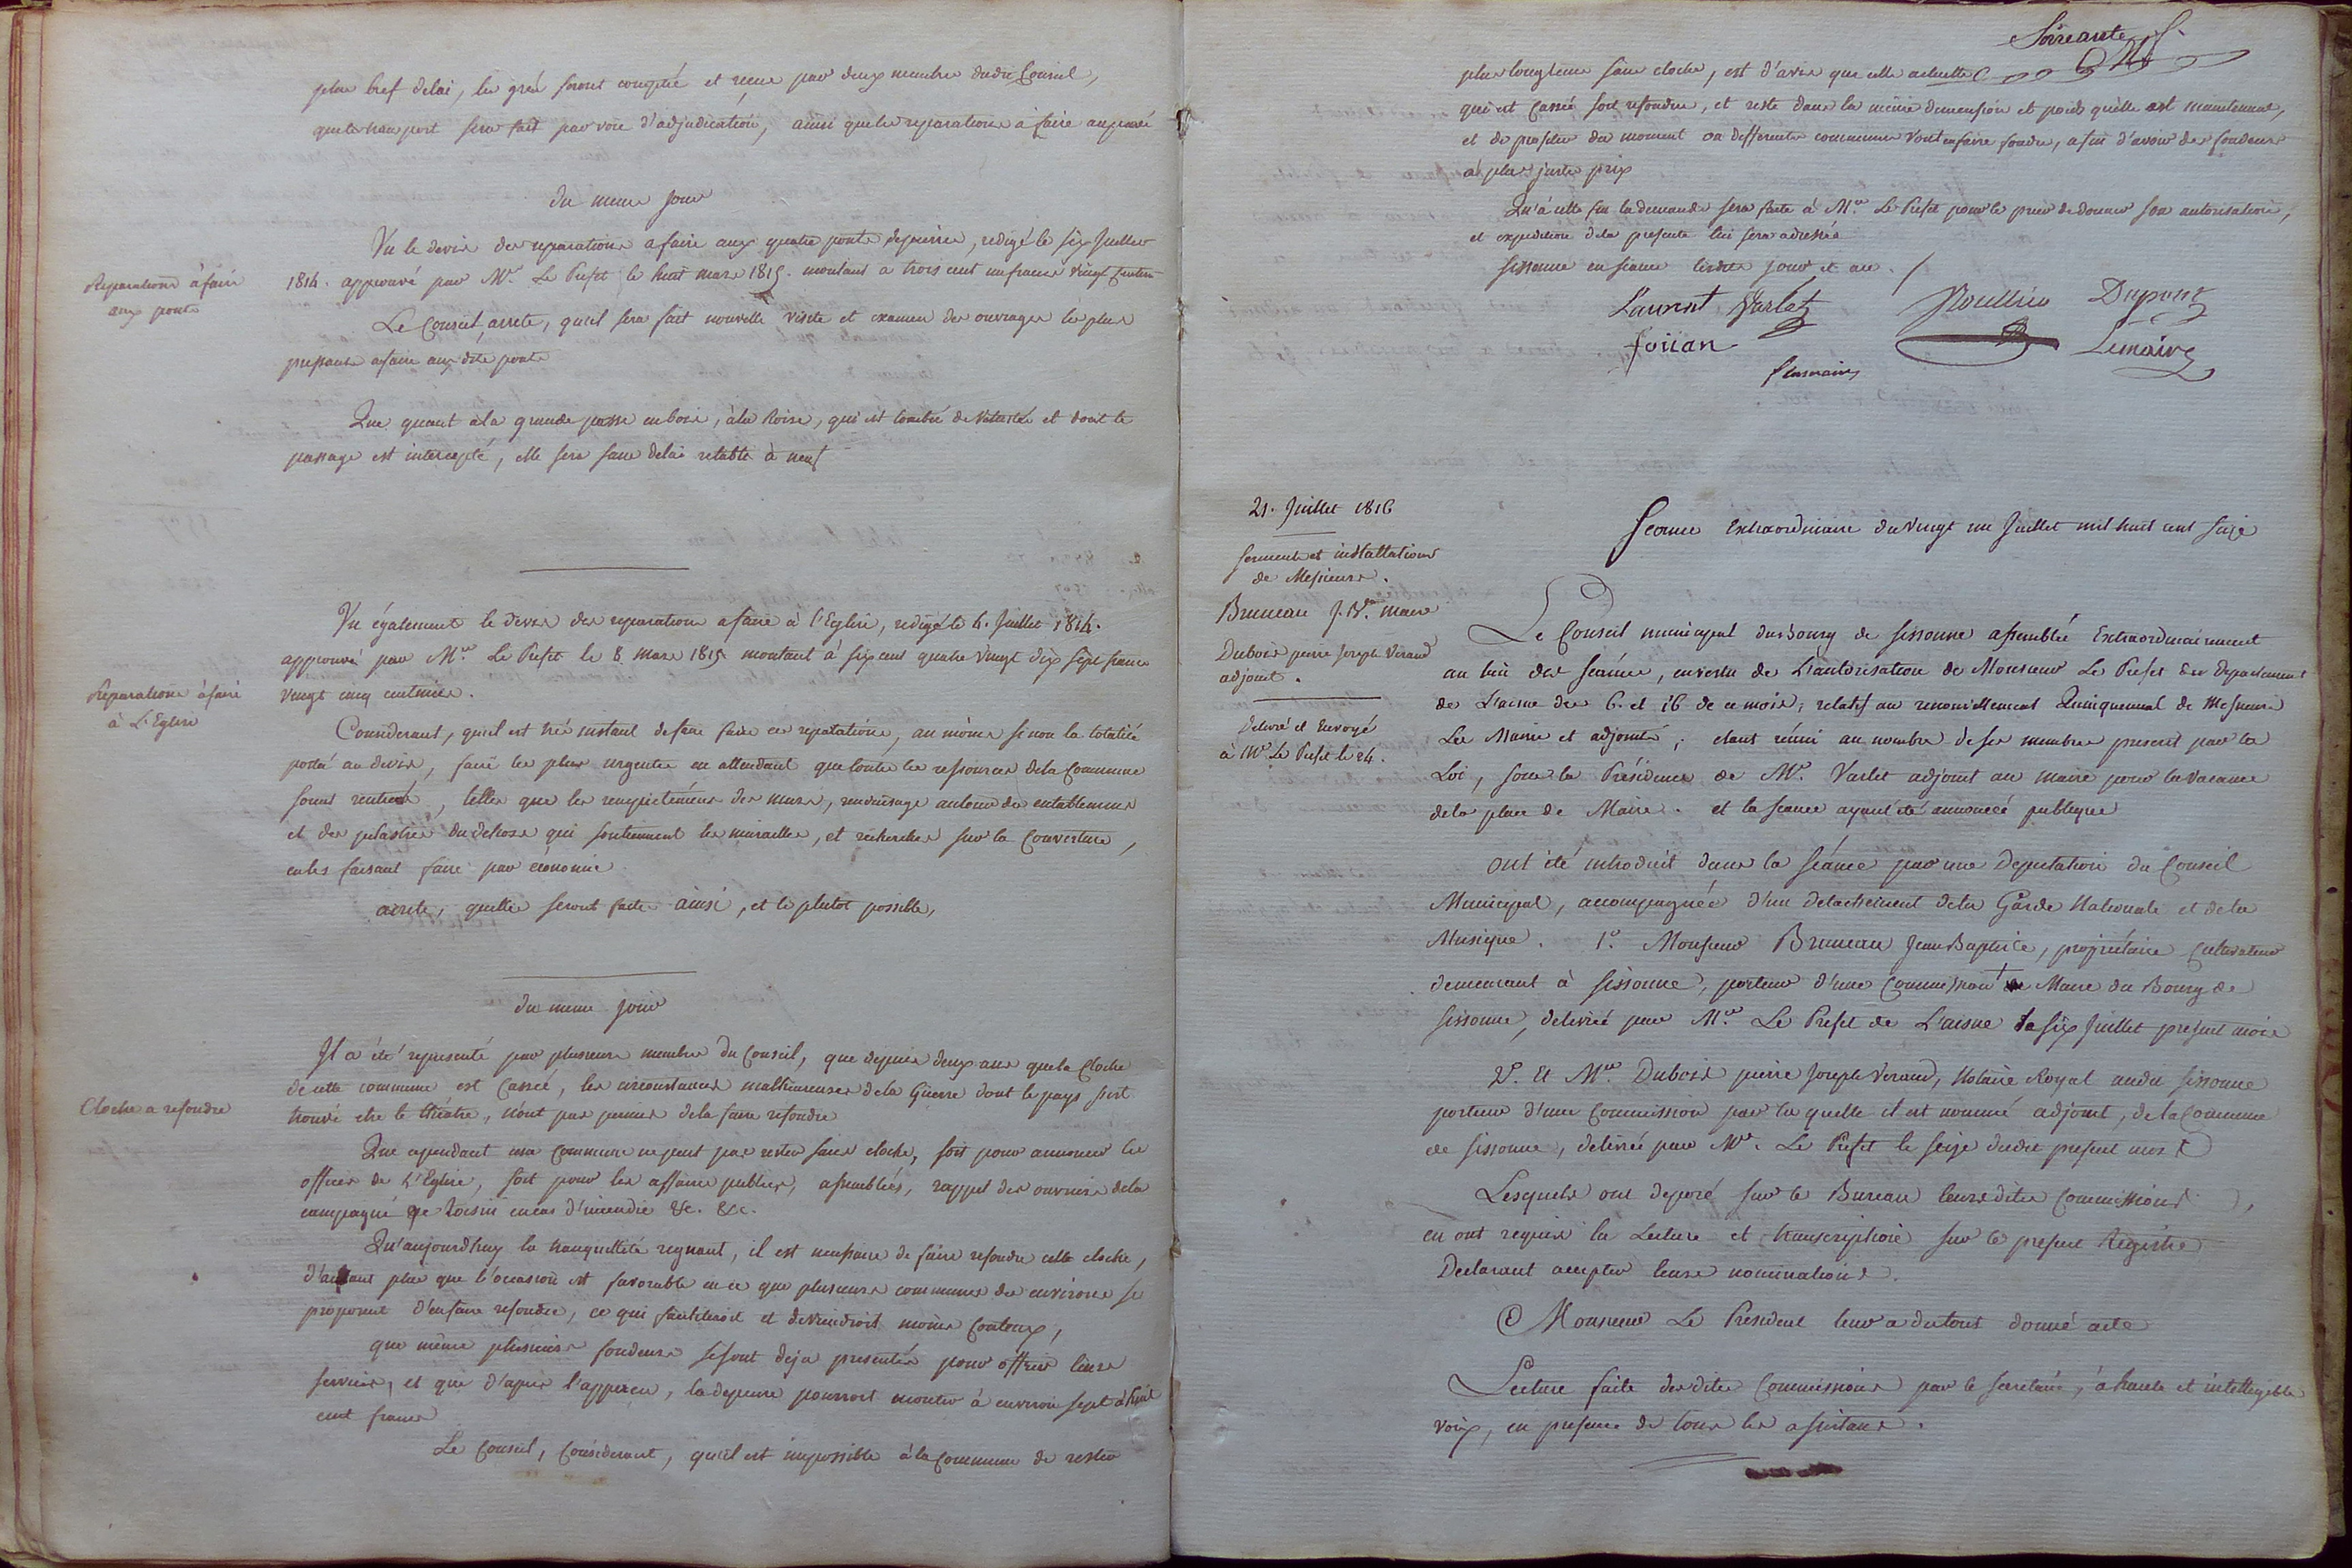 plus bref delai, les grés seront comptés et reçus par deux membres dudit Conseil,
que le transport sera fait par voie d'adjudication, ainsi que les reparations à faire au pavé
du meme jour
Vu le devis des reparations a faire aux quatre ponts depierres, redigé le six Juillet
Reparations à faire
aux ponts
1814. approuvé par Mr. Le Prefet le huit mars 1815. montant a trois cent un francs vingt centim
Le Conseil arrete, qu'il sera fait nouvelle visite et examen des ouvrages les plus
pressants a faire aux dits ponts
Que quant à la grande passe en bois, à la Roise, qui est tombée de vetusté et dont le
passage est intercepté, elle sera sans delai retablie à neuf
Vu également le devis des reparations a faire à l'Eglise, redigé le 6. Juillet 1814.
approuvé par Mr. Le Prefet le 8 mars 1815 montant à six cent quatre vingt dix sept francs
vingt cinq centimes.
Reparations à faire
à L'Eglise
Considerant, qu'il est très instant de faire faire ces reparations, au moins si non la totalité
porté au devis, faire les plus urgentes en attendant que toutes les ressources de la Commune
soient rentrées, telles que les rempietements des murs, autour des entablements
et des pilastres du dehors qui soutiennent les murailles, et recherches sur la Couverture,
en les faisant faire par economie
arrete, quelles seront faites ainsi, et le plutot possible,
du meme jour
Il a été representé par plusieurs membres du Conseil, que depuis deux ans que la Cloche
de cette commune est Cassée, les circonstances malheureuses de la Guerre dont le pays s'est
trouvé etre le théatre, n'ont pas permis de la faire refondre
Cloche a refondre
Que cependant une Commune ne peut pas rester sans cloche, soit pour annoncer les
offices de L'Eglise, soit pour les affaires publics, assemblées, rappel des ouvriers de la
campagne que Voisin en cas d'incendie &c. &c.
Qu'aujourd'huy la tranquillité regnant, il est necessaire de faire refondre cette cloche,
d'autant plus que l'occasion est favorable en ce que plusieurs communes des environs se
proposent d'en faire refondre, ce qui faciliteroit et deviendroit moins Couteux,
que même plusieurs fondeurs se sont deja presentés pour offrir leurs
services, et que d'après l'apperçu, la depense pourroit monter à environ sept à huit
cent francs
Le Conseil, Considerant, qu'il est impossible à la Commune de rester
Soixante
plus longtems sans cloche, est d'avis que celle actuelle
qui est Cassée soit refondue, et reste dans la même dimension et poids qu'elle est maintenant,
et de profiter du moment ou differentes communes vont en faire fondre, afin d'avoir des fondeurs
à plus juste prix
Qu'à cette fin la demande sera faite à Mr. Le Prefet pour le prier de donner son autorisation,
et expedition de la presente lui sera adressée
Sissonne en seance lesdits jour et an.
Laurent Varlet Dupont
Foüan Lemaire
21. Juillet 1816
Seance Extraordinaire du Vingt un Juillet mil huit cent Seize
Serment et installation
de Messieurs.
Bruneau J. Bte. maire
Dubois pierre Joseph Verand
adjoint.
Delivré et Envoyé
à Mr. Le Prefet le 24.
Le Conseil municipal du Bourg de Sissonne assemblée Extraordinairement
au lieu des Séances, en vertu de L'autorisation de Monsieur Le Prefet du Departement
de L'aisne des 6. et 16 de ce mois, relatif au renouvellement Quinquennal de Messieurs
Les Maires et adjoints; etant réuni au nombre de ses membres prescrit par la
Loi, sous la Présidence de Mr. Varlet adjoint au maire pour la vacance
de la place de Maire. et la seance ayant été annoncée publique
Ont été introduit dans la Séance par une Deputation du Conseil
Municipal, accompagnée d'un detachement de la Garde Nationale et de la
Musique. 1°. Monsieur Bruneau Jean Baptiste, propriétaire Cultivateur
demeurant à Sissonne, porteur d'une Commission de Maire du Bourg de
Sissonne, delivrée par Mr. Le Prefet de L'aisne le six Juillet present mois
2°. Et Mr. Dubois pierre Joseph Verand, Notaire Royal audit Sissonne
porteur d'une Commission par la quelle il est nommé adjoint, de la Commune
de Sissonne, delivrée par Mr. Le Prefet le seize dudit present mois
Lesquels ont deposé sur le Bureau leursdites Commissions,
en ont requis la Lecture et transcription sur le present Registre
Declarant accepter leurs nominations.
Monsieur Le President leur a du tout donné acte
Lecture faite desdites Commissions par le secretaire, à haute et intelligible
voix, en presence de tous les assistans.